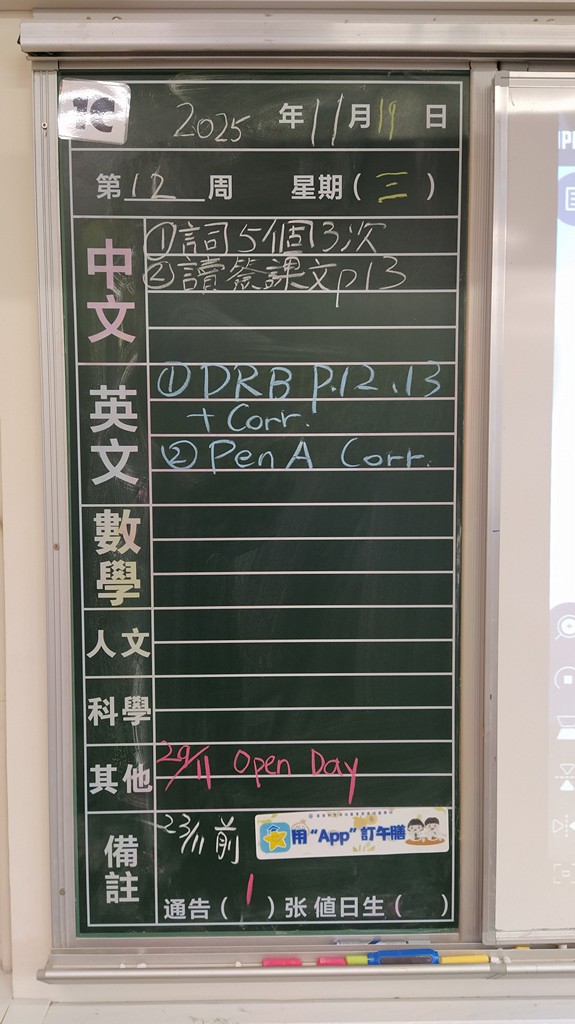 1C
2025 年 11 月 19 日
第 12 周 星期 ( 三 )
中文
①詞5個3次
②讀簽課文p13
英文
①DRB P.12、13
+ Corr.
②Pen A Corr.
數學
人文
科學
其他
29/11 Open Day
備註
23/11 前
用“App”訂午膳
通告 ( 1 ) 张 值日生 ( )